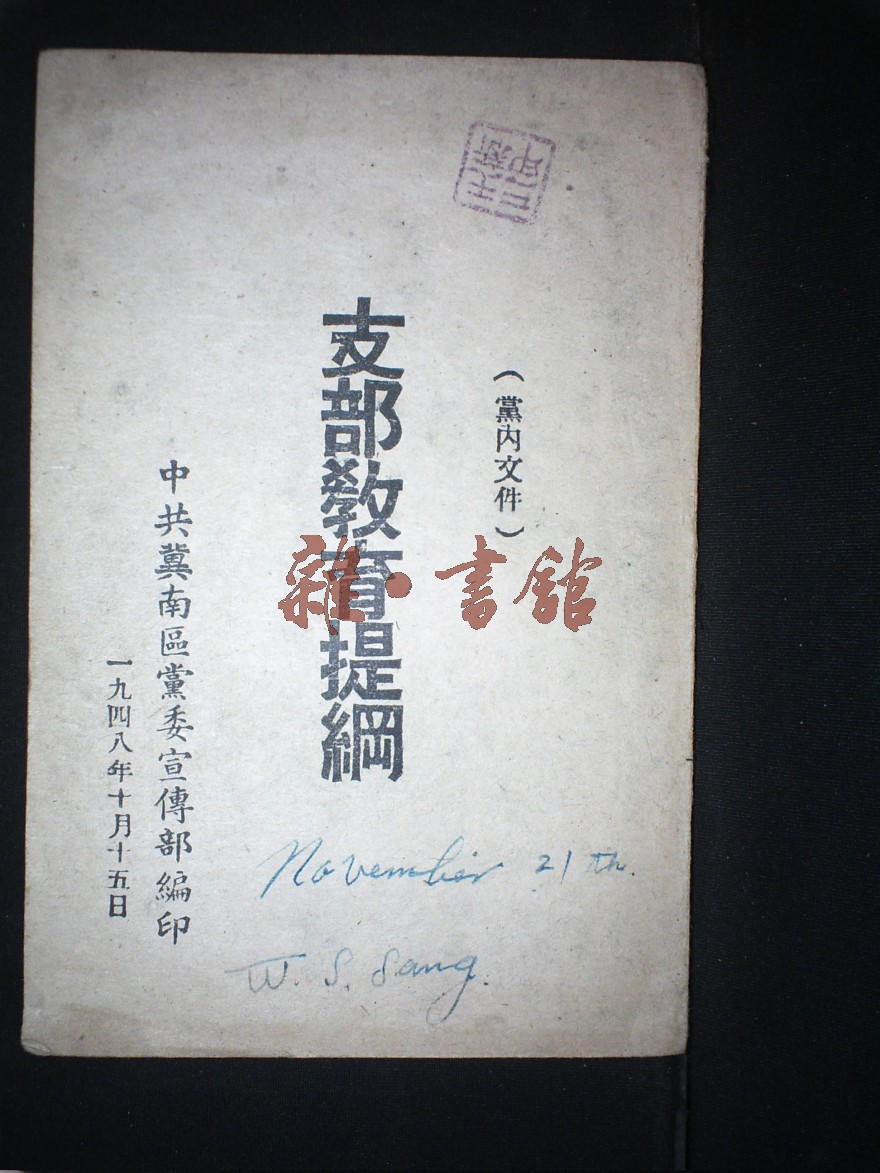 （黨内文件）
支部教育提綱
中共冀南區黨委宣傳部編印
一九四八年十月十五日
雜·書館
November 21 th.
W. S. Sang.